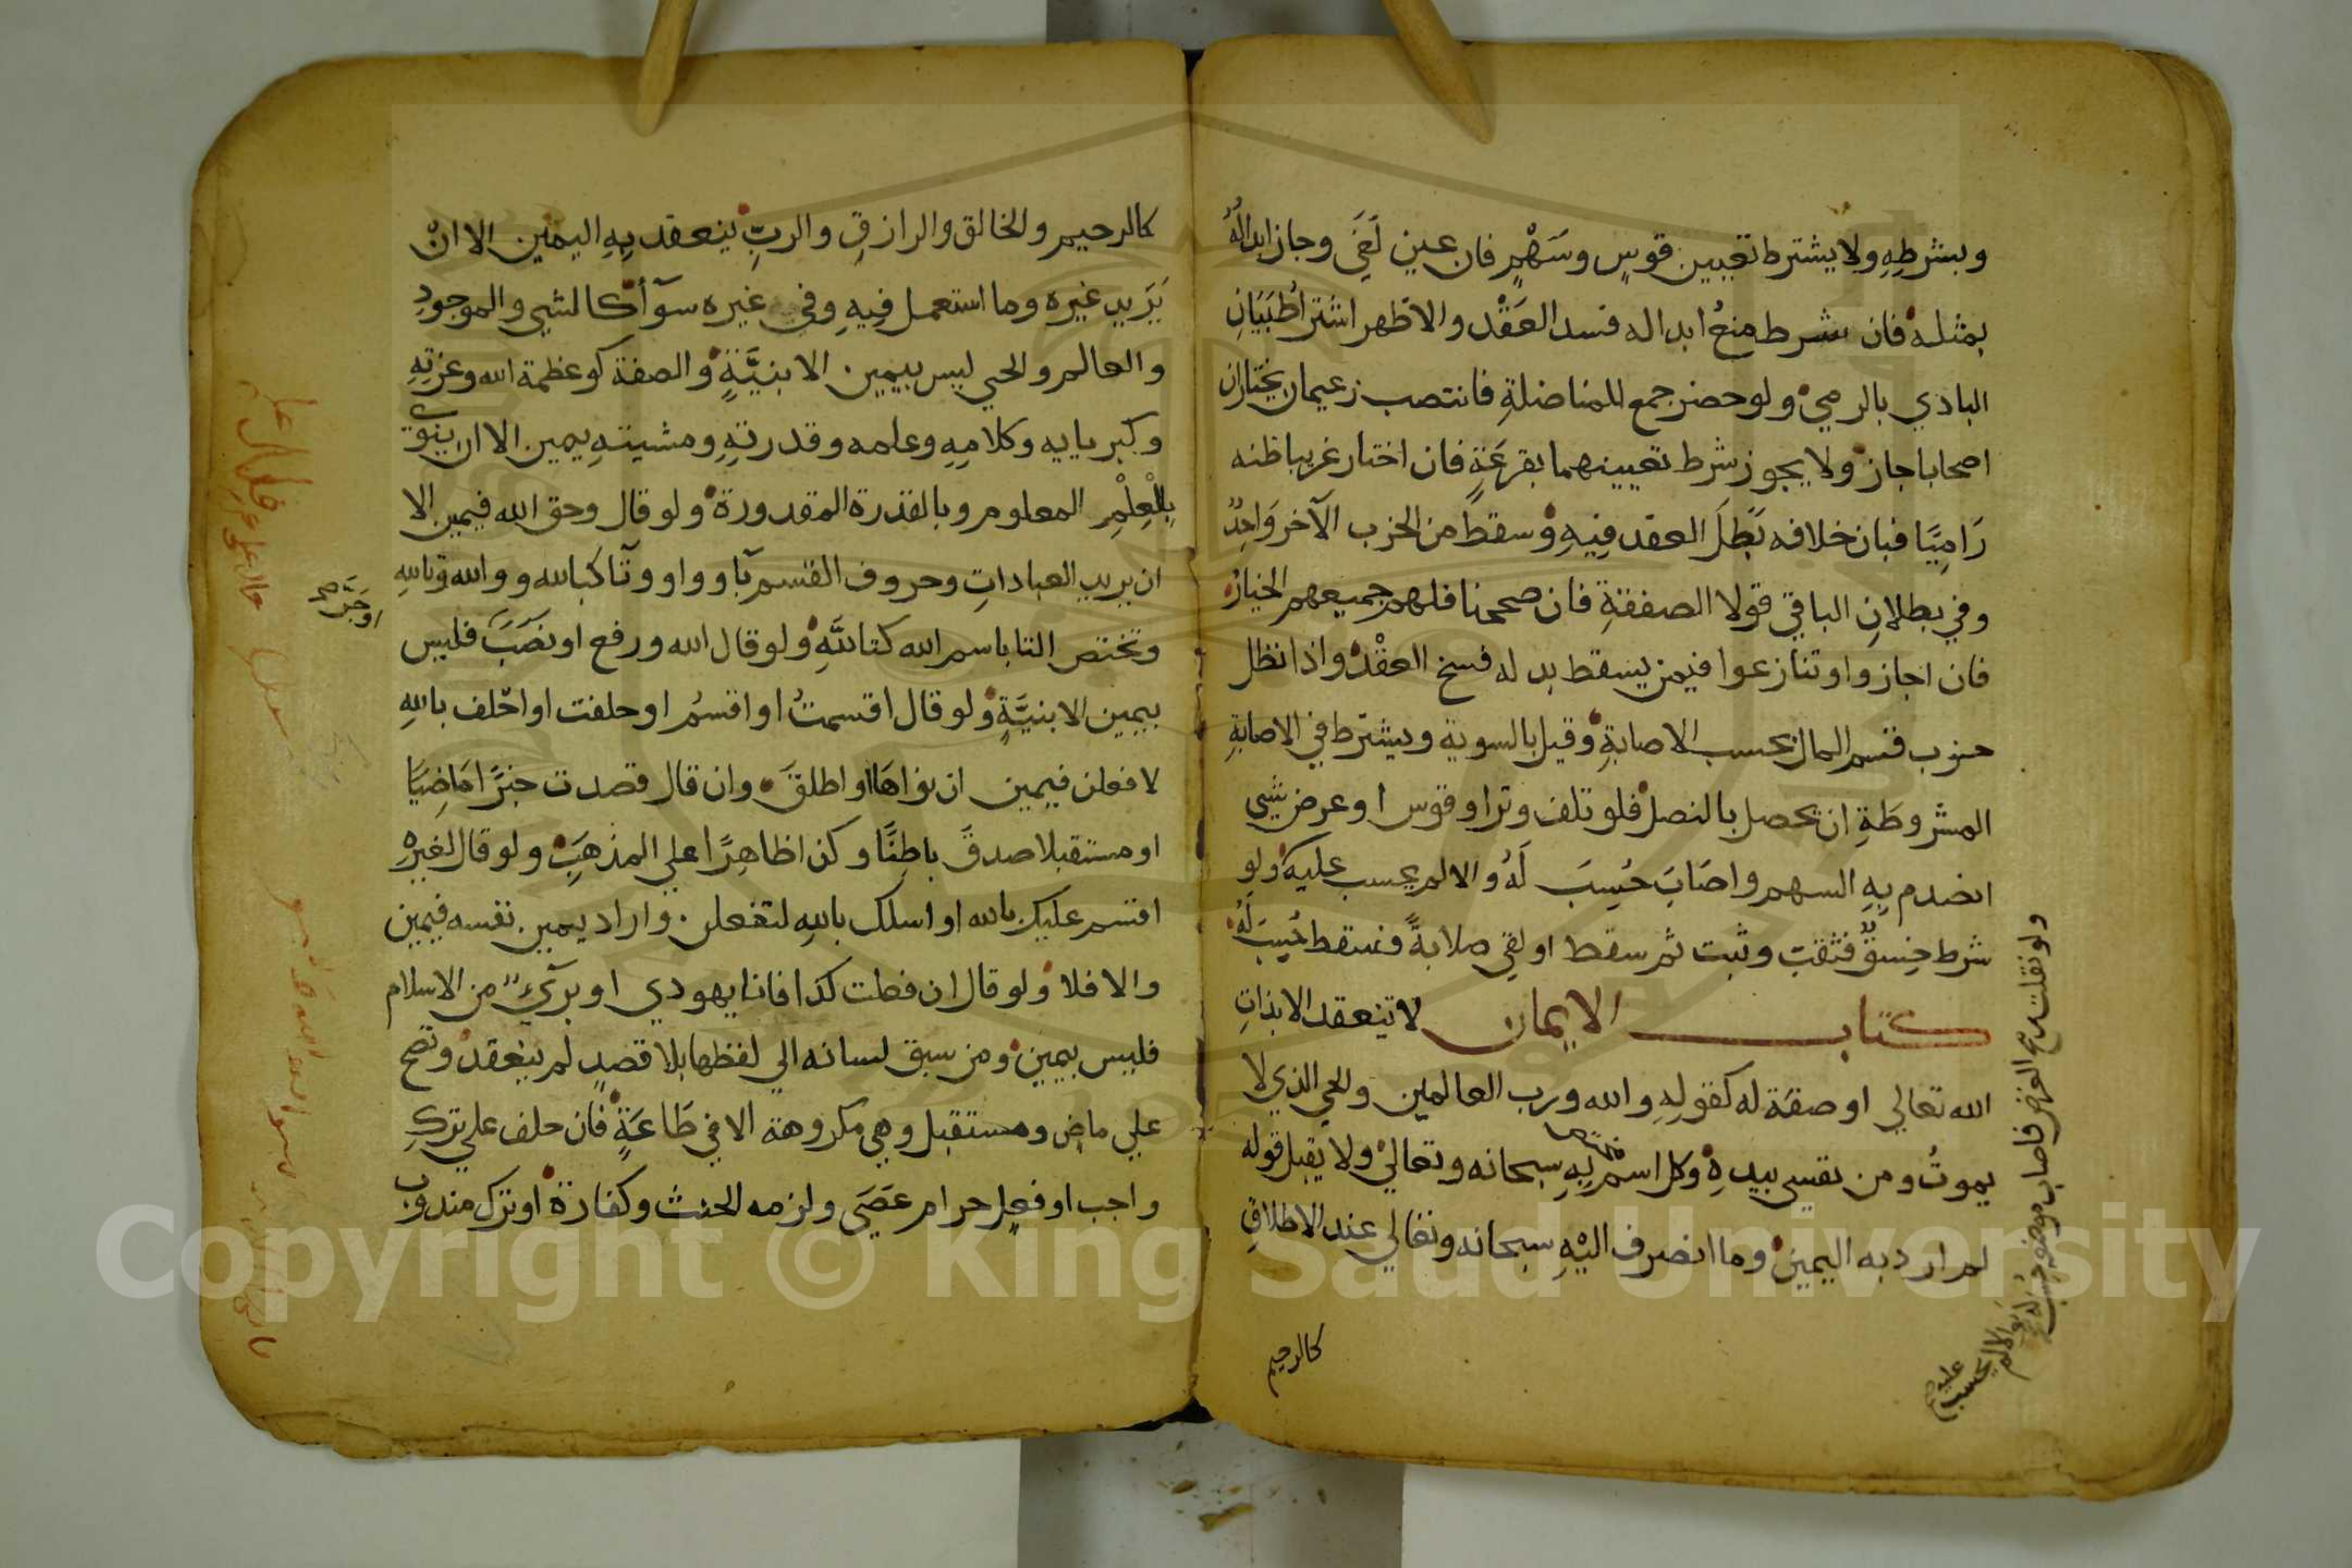 وبشرطِهِ ولا يشترط تعيين قوسٍ وسَهْمٍ فان عين لَغَي وجاز ابدالُهُ
بمثله فان شرط منعُ ابداله فسد العَقْد والاظهر اشتراطُ بَيَانِ
البادي بالرمي ولو حضر جمع للمناضلةِ فانتصب زعيمان يختاران
اصحابا جاز ولا يجوز شرط تعيينهما بقرعَةٍ فان اختار غريبا ظنه
رَامِيًا فبان خلافه بَطلَ العقد فِيهِ وسقط من الحزب الآخر وَاحِدٌ
وفي بطلانِ الباقي قولا الصفقةِ فان صححنا فلهم جميعهم الخيارُ
فان اجازوا وتنازعوا فيمن يسقط بدله فسخ العقْدُ واذا نظل
حزب قسم المال بحسب الاصابةِ وقيل بالسوية ويشترط في الاصابةِ
المشروطَةِ ان يحصل بالنصل فلو تلف وترا وقوس او عرض شي
انصدم بِهِ السهم واصَابَ حُسِبَ لَهُ والا لم يحسب عليه ولو
شرط خِسقٌ فثقب وثبت ثم سقط او لقي صلابةً فسقط حُسِبَ لَهُ
كتاب الايمان لا تنعقد الا بذاتِ
الله تعالي او صفة له كقولِهِ والله ورب العالمين والحي الذي لا
يموتُ ومن نفسي بيدِهِ وكل اسم مختص بِهِ سبحانه وتعالي ولا يقبل قوله
لم ارد به اليمين وما انصرف اليْهِ سبحانه وتعالي عند الاطلاقِ
كالرحيم
ولو نقلت ريح الغرض فاصاب موضعه حُسِبَ لَهُ والا لم يحسب عليه
كالرحيم والخالق والرازقِ والربِّ ينعقد بِهِ اليمين الا انْ
يَرِيد غيره وما استعمل فِيهِ وفي غيره سوآأ كالشي والموجودِ
والعالم والحي ليس بيمين الا بنيَّةٍ والصفة كوعظمة الله وعزتِهِ
وكبريايه وكلامِهِ وعلمه وقدرتِهِ ومشيتهِ يمين الا ان ينوي
بِالْعِلْمِ المعلوم وبالقدرة المقدورة ولو قال وحق الله فيمين الا
ان يريد العباداتِ وحروف القسم بآ وواو وتآ كبالله ووالله وتاللهِ
وتختص التا باسم الله كتاللَّهِ ولو قال الله ورفع او نصَبَ فليس
او جَرَّ صح
بيمين الا بنيَّةٍ ولو قال اقسمتُ او اقسمُ او حلفت او احْلف باللهِ
لافعلن فيمين ان نواهَا او اطلقَ وان قال قصدت خبرًا مَاضِيًا
او مستقبلا صدقَ باطِنًا وكذا ظاهِرًا علي المذهَبِ ولو قال لغيرِهِ
اقسم عليك بالله او اسلك باللهِ لتفعلن واراد يمين نفسه فيمين
والا فلا ولو قال ان فعلت كذا فانا يهودي او برآيٌ من الاسلام
فليس بيمين ومن سبق لسانه الي لفظها بلا قصدٍ لم ينعقد وتصح
علي ماضٍ ومستقبل وهي مكروهة الا في طَاعَةٍ فان حلف علي تركِ
واجب او فعلِ حرام عَصَي ولزمه الحنث وكفارة او ترك مندوب
Copyright © King Saud University